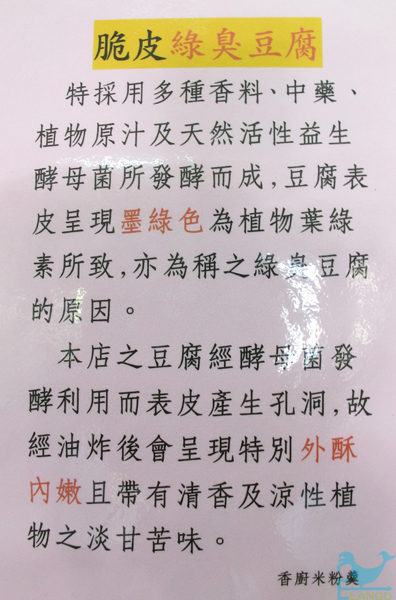 脆皮綠臭豆腐
特採用多種香料、中藥、
植物原汁及天然活性益生
酵母菌所發酵而成,豆腐表
皮呈現墨綠色為植物葉綠
素所致,亦為稱之綠臭豆腐
的原因。
本店之豆腐經酵母菌發
酵利用而表皮產生孔洞,故
經油炸後會呈現特別外酥
內嫩且帶有清香及涼性植
物之淡甘苦味。
香廚米粉羹